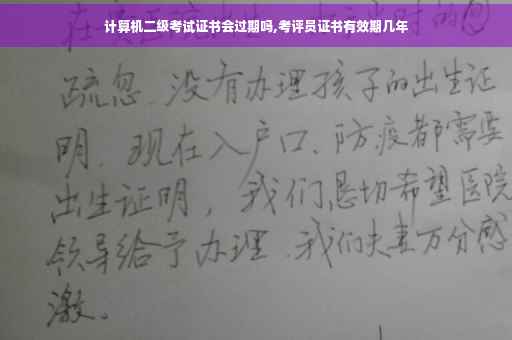 计算机二级考试证书会过期吗,考评员证书有效期几年
疏忽.没有办理孩子的出生证
明.现在入户口、防疫都需要
出生证明,我们恳切希望医院
领导给予办理.我们夫妻万分感
激。